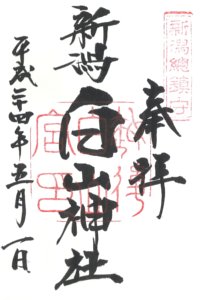 新潟總鎮守
奉拝
新潟白山神社
平成二十四年五月一日